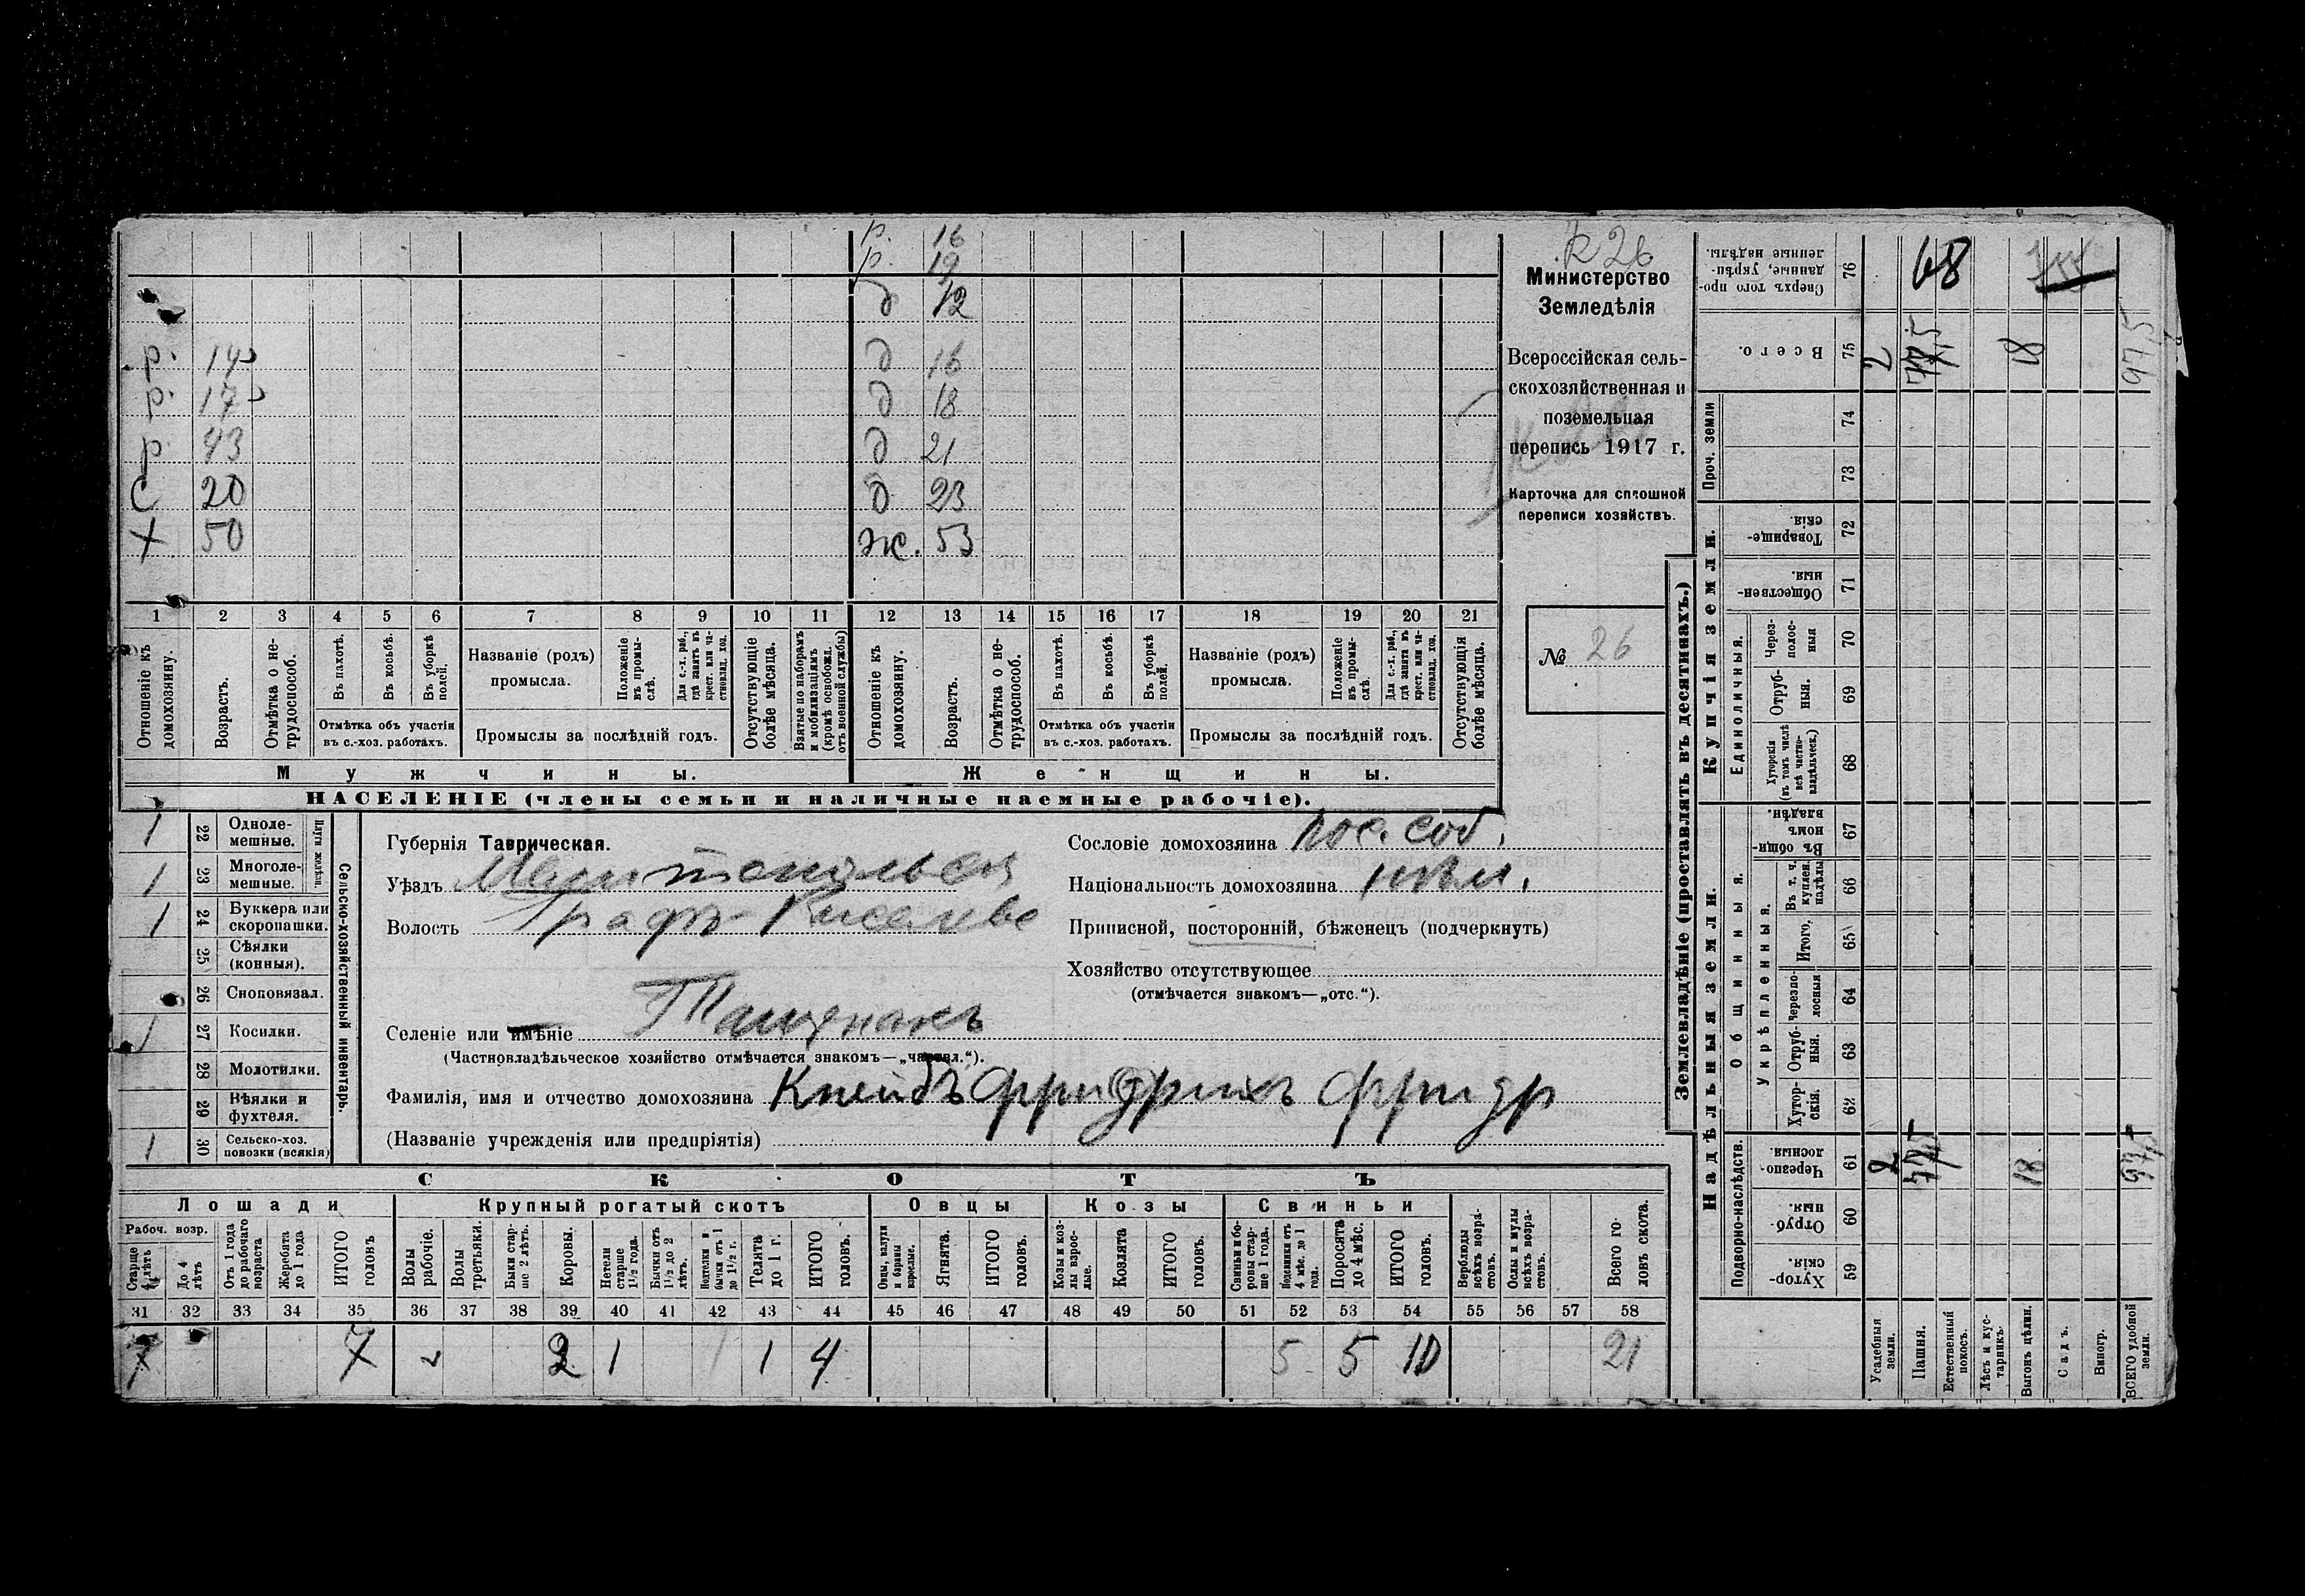 р. 16
р. 19
д 12
р. 14 д 16
р. 17 д 18
р. 43 д 21
С 20 д 23
х 50 ж. 53
1 2 3 4 5 6 7 8 9 10 11 12 13 14 15 16 17 18 19 20 21
Отношеніе къ домохозяину.
Возрастъ.
Отмѣтка о не-трудоспособ.
Въ пахотѣ.
Въ косьбѣ.
Въ уборкѣ полей.
Отмѣтка объ участіи въ с.-хоз. работахъ.
Названіе (родъ) промысла.
Положеніе въ промы-слѣ.
Для с.-х. раб., гдѣ занятъ въ крест. или ча-стновлад. хоз.
Промыслы за послѣдній годъ.
Отсутствующіе болѣе мѣсяца.
Взятые по наборамъ и мобилизаціямъ (кромѣ освобожд. отъ военной службы)
Отношеніе къ домохозяину.
Возрастъ.
Отмѣтка о не-трудоспособ.
Въ пахотѣ.
Въ косьбѣ.
Въ уборкѣ полей.
Отмѣтка объ участіи въ с.-хоз. работахъ.
Названіе (родъ) промысла.
Положеніе въ промы-слѣ.
Для с.-х. раб., гдѣ занята въ крест. или ча-стновлад. хоз.
Промыслы за послѣдній годъ.
Отсутствующія болѣе мѣсяца.
Мужчины. Женщины.
НАСЕЛЕНІЕ (члены семьи и наличные наемные рабочіе).
к 26
Министерство
Земледѣлія
Всероссійская сель-
скохозяйственная и
поземельная
перепись 1917 г.
Карточка для сплошной
переписи хозяйствъ.
№ 26
Сельско-хозяйственный инвентарь.
Плуги желѣзн.
1 22 Одноле-мешные.
1 23 Многоле-мешные.
1 24 Буккера или скоропашки.
25 Сѣялки (конныя).
26 Сноповязал.
1 27 Косилки.
28 Молотилки.
29 Вѣялки и фухтеля.
1 30 Сельско-хоз. повозки (всякія)
Губернія Таврическая.
Уѣздъ Мелитопольск
Волость Графъ-
Селеніе или имѣніе Тащенакъ
(Частновладѣльческое хозяйство отмѣчается знакомъ—„частвл.“).
Фамилія, имя и отчество домохозяина Кнейбъ Фридрихъ Фридр
(Названіе учрежденія или предпріятія)
Сословіе домохозяина пос. соб.
Національность домохозяина нѣм.
Приписной, посторонній, бѣженецъ (подчеркнуть)
Хозяйство отсутствующее
(отмѣчается знакомъ—„отс.“).
СКОТЪ
Лошади Крупный рогатый скотъ Овцы Козы Свиньи
Рабоч. возр.
Старше 4 лѣтъ
До 4 лѣтъ
Отъ 1 года до рабочаго возраста
Жеребята до 1 года
ИТОГО головъ
Волы рабочіе.
Волы третьяки.
Быки стар-ше 2 лѣтъ.
Коровы.
Нетели старше 1½ года.
Бычки отъ 1½ до 2 лѣтъ.
Подтелки и бычки отъ 1 до 1½ г.
Телята до 1 г.
ИТОГО головъ.
Овцы, валухи и бараны взрослые.
Ягнята.
ИТОГО головъ.
Козы и коз-лы взрос-лые.
Козлята
ИТОГО головъ.
Свиньи и бо-ровы стар-ше 1 года.
Подсвинки отъ 4 мѣс. до 1 года.
Поросята до 4 мѣс.
ИТОГО головъ.
Верблюды всѣхъ возра-стовъ.
Ослы и мулы всѣхъ возра-стовъ.
Всего го-ловъ скота.
31 32 33 34 35 36 37 38 39 40 41 42 43 44 45 46 47 48 49 50 51 52 53 54 55 56 57 58
7 7 2 1 1 4 5 5 10 21
Землевладѣніе (проставлять въ десятинахъ.)
Купчія земли.
Надѣльныя земли.
Сверхъ того про-данные, укрѣп-ленные надѣлы. 76 68
Всего. 75 2 77,5 18 97,5
Проч. земли 74
73
Товарище-скія 72
Обществен-ныя. 71
Единоличныя.
Через-полос-ныя 70
Отруб-ныя. 69
Хуторскія (въ томъ числѣ всѣ частно-владѣльческ.) 68
Общинныя.
Въ общи-номъ владѣн. 67
Укрѣпленныя.
Въ т. ч. куплен. надѣлы 66
Итого. 65
Черезпо-лосныя 64
Отруб-ныя. 63
Хутор-скія. 62
Подворно-наслѣдств.
Черезпо-лосныя. 61 2 77,5 18 97,5
Отруб-ныя. 60
Хутор-скія. 59
Усадебныя земли.
Пашня.
Естественный покосъ.
Лѣсъ и кус-тарникъ.
Выгонъ цѣлин.
Садъ.
Виногр.
ВСЕГО удобной земли.